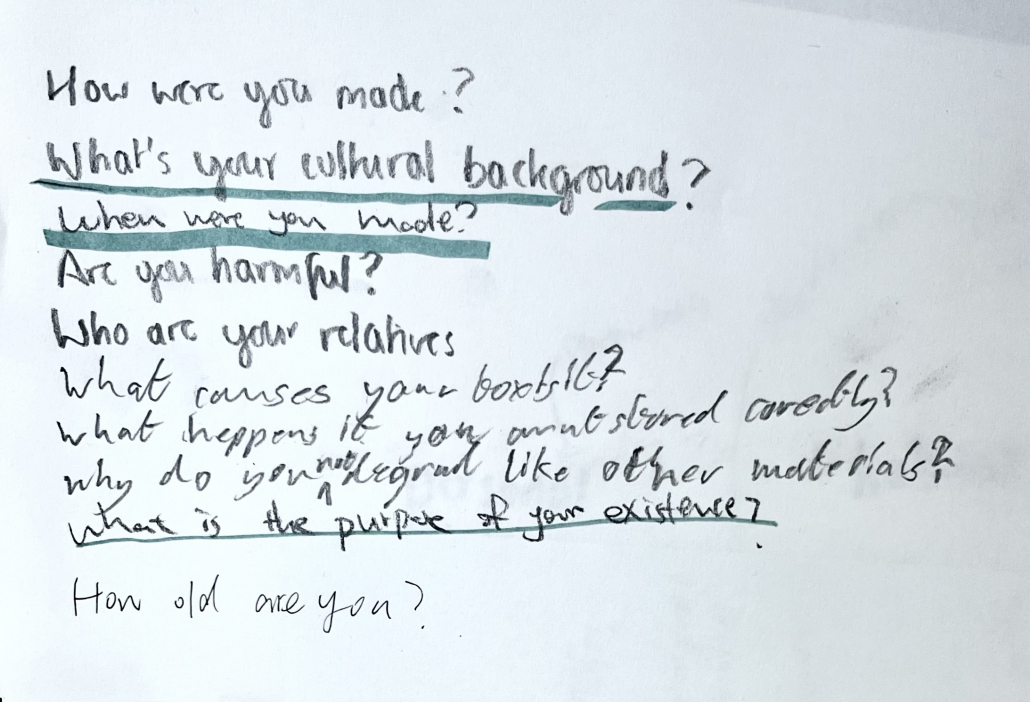 How were you made?
What's your cultural background?
When were you made?
Are you harmful?
Who are your relatives
What causes your
What heppens if you arnt stored coredtly?
why do you not degrad like other materials?
What is the purpose of your existense?
How old are you?